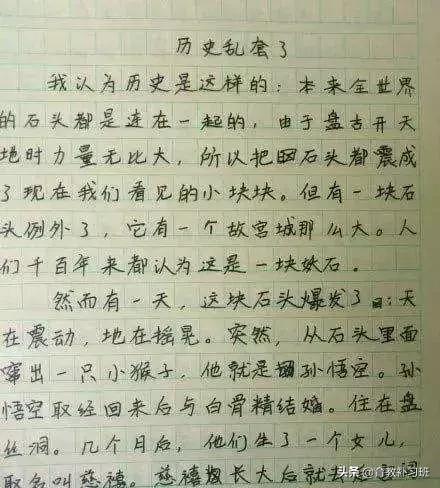 历史乱套了
我认为历史是这样的：本来全世界
的石头都是连在一起的，由于盘古开天
地时力量无比大，所以把石头都震成
了现在我们看见的小块块。但有一块石
头例外了，它有一个故宫城那么大。人
们千百年来都认为这是一块妖石。
然而有一天，这块石头爆发了：天
在震动，地在摇晃。突然，从石头里面
窜出一只小猴子，他就是孙悟空。孙
悟空取经回来后与白骨精结婚。住在盘
丝洞。几个月后，他们生了一个女儿，
取名叫慈禧。慈禧长大后就
头条 @育教补习班